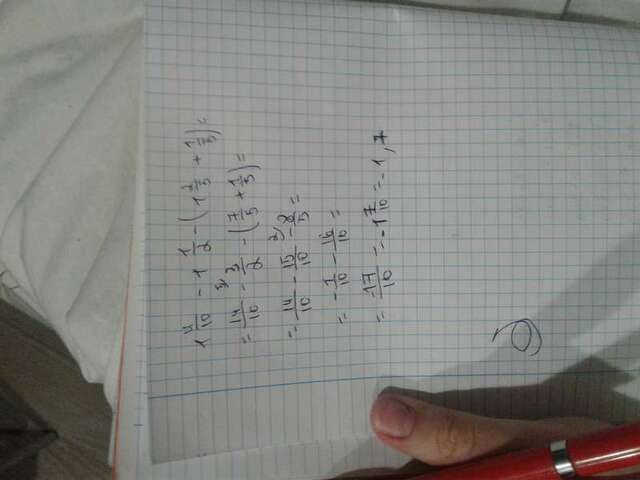 1 4/10 - 1 1/2 - (1 2/5 + 1/5) =
= 14/10 - ⁵⁾3/2 - (7/5 + 1/5) =
= 14/10 - 15/10 - ²⁾8/5 =
= -1/10 - 16/10 =
= -17/10 = -1 7/10 = -1,7